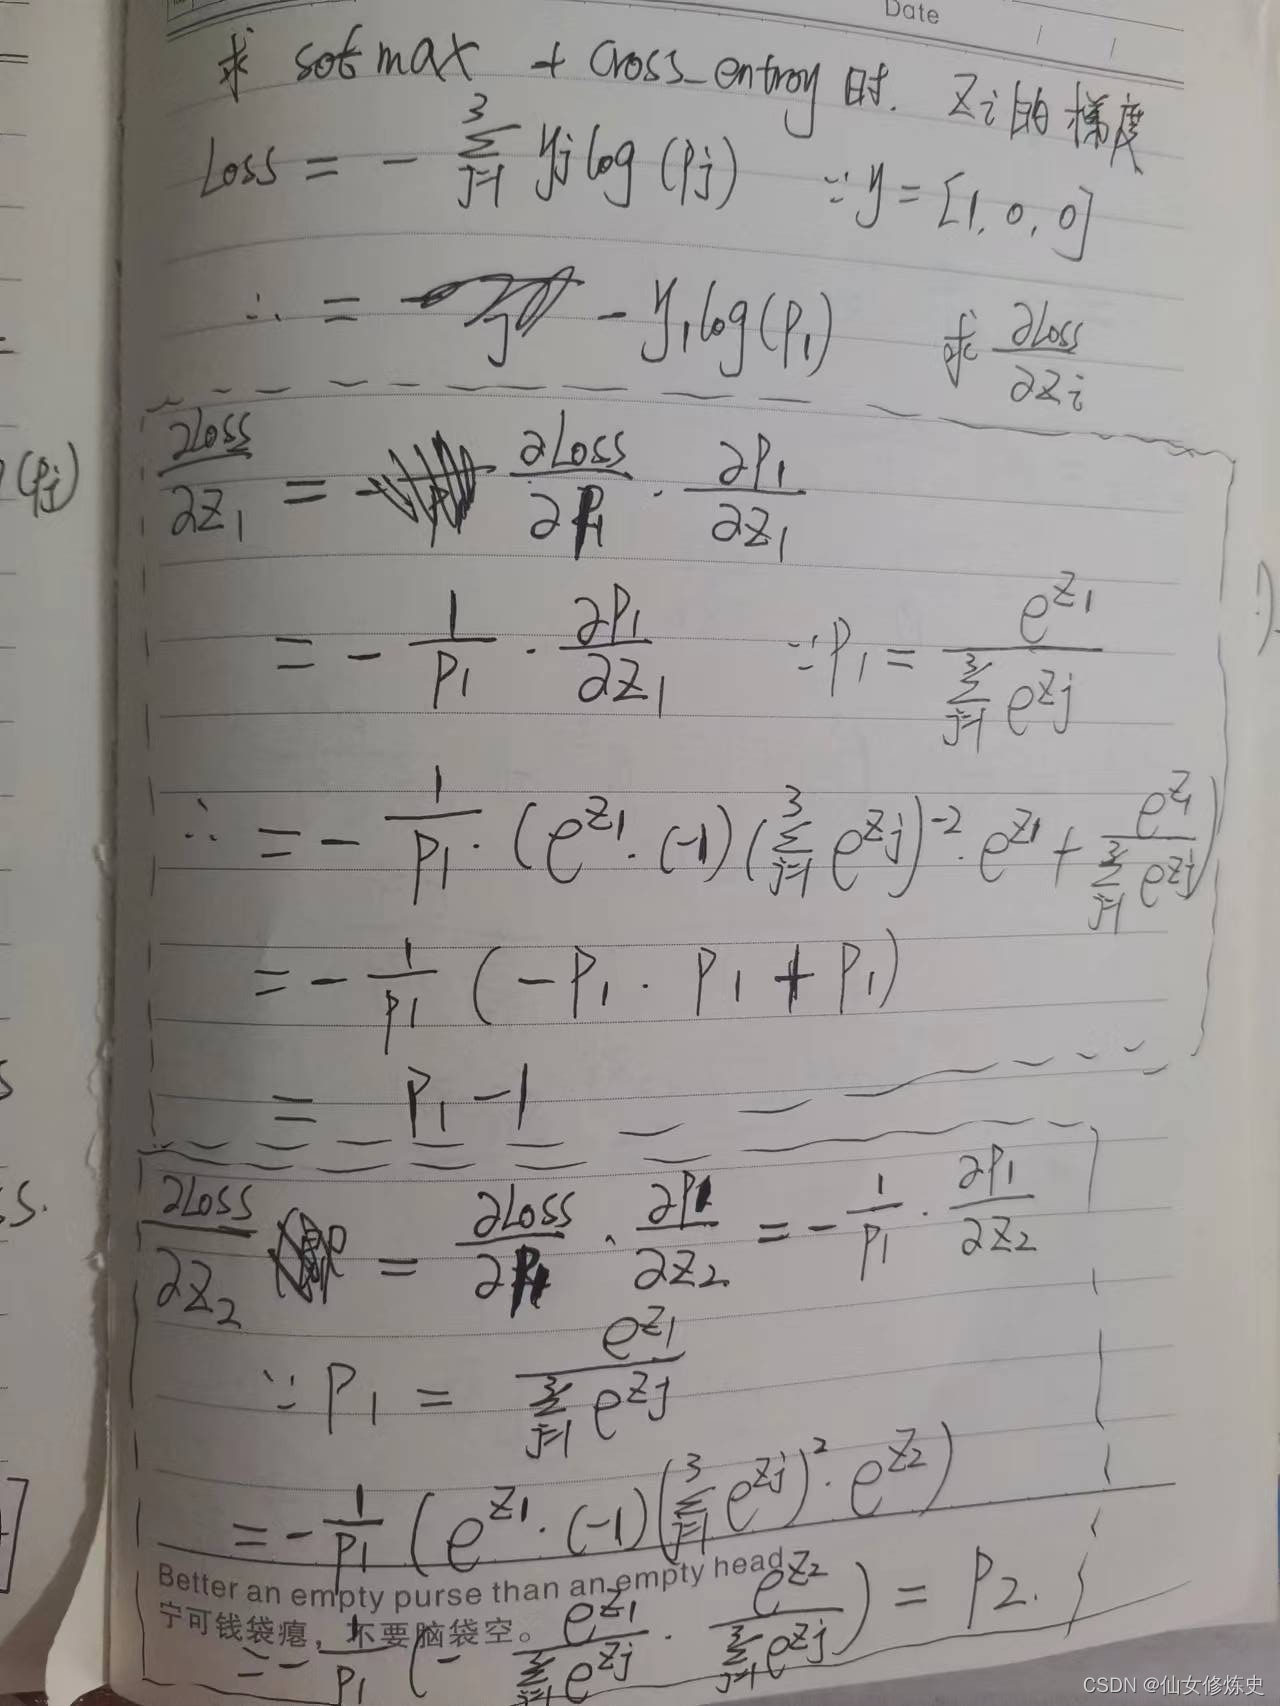 Date
求 sofmax + Cross_entroy 时. Zi 的 梯度
Loss = - ∑_{j=1}^{3} yj log (Pj) ∵ y = [1, 0, 0]
∴ = - y₁log(P₁) 求 ∂Loss/∂Zi
(Pj)
∂Loss/∂Z₁ = ∂Loss/∂P₁ · ∂P₁/∂Z₁
= - 1/P₁ · ∂P₁/∂Z₁ ∵ P₁ = e^{Z₁} / ∑_{j=1}^{3} e^{Zj}
∴ = - 1/P₁ · (e^{Z₁} · (-1) (∑_{j=1}^{3} e^{Zj})^{-2} · e^{Z₁} + e^{Z₁} / ∑_{j=1}^{3} e^{Zj})
= - 1/P₁ (-P₁ · P₁ + P₁)
= P₁ - 1
s.
∂Loss/∂Z₂ = ∂Loss/∂P₁ · ∂P₁/∂Z₂ = - 1/P₁ · ∂P₁/∂Z₂
∵ P₁ = e^{Z₁} / ∑_{j=1}^{3} e^{Zj}
= - 1/P₁ (e^{Z₁} · (-1) (∑_{j=1}^{3} e^{Zj})^{2} · e^{Z₂})
Better an empty purse than an empty head
宁可钱袋瘪，不要脑袋空。
= - 1/P₁ (- e^{Z₁} / ∑_{j=1}^{3} e^{Zj} · e^{Z₂} / ∑_{j=1}^{3} e^{Zj}) = P₂.
CSDN @仙女修炼史